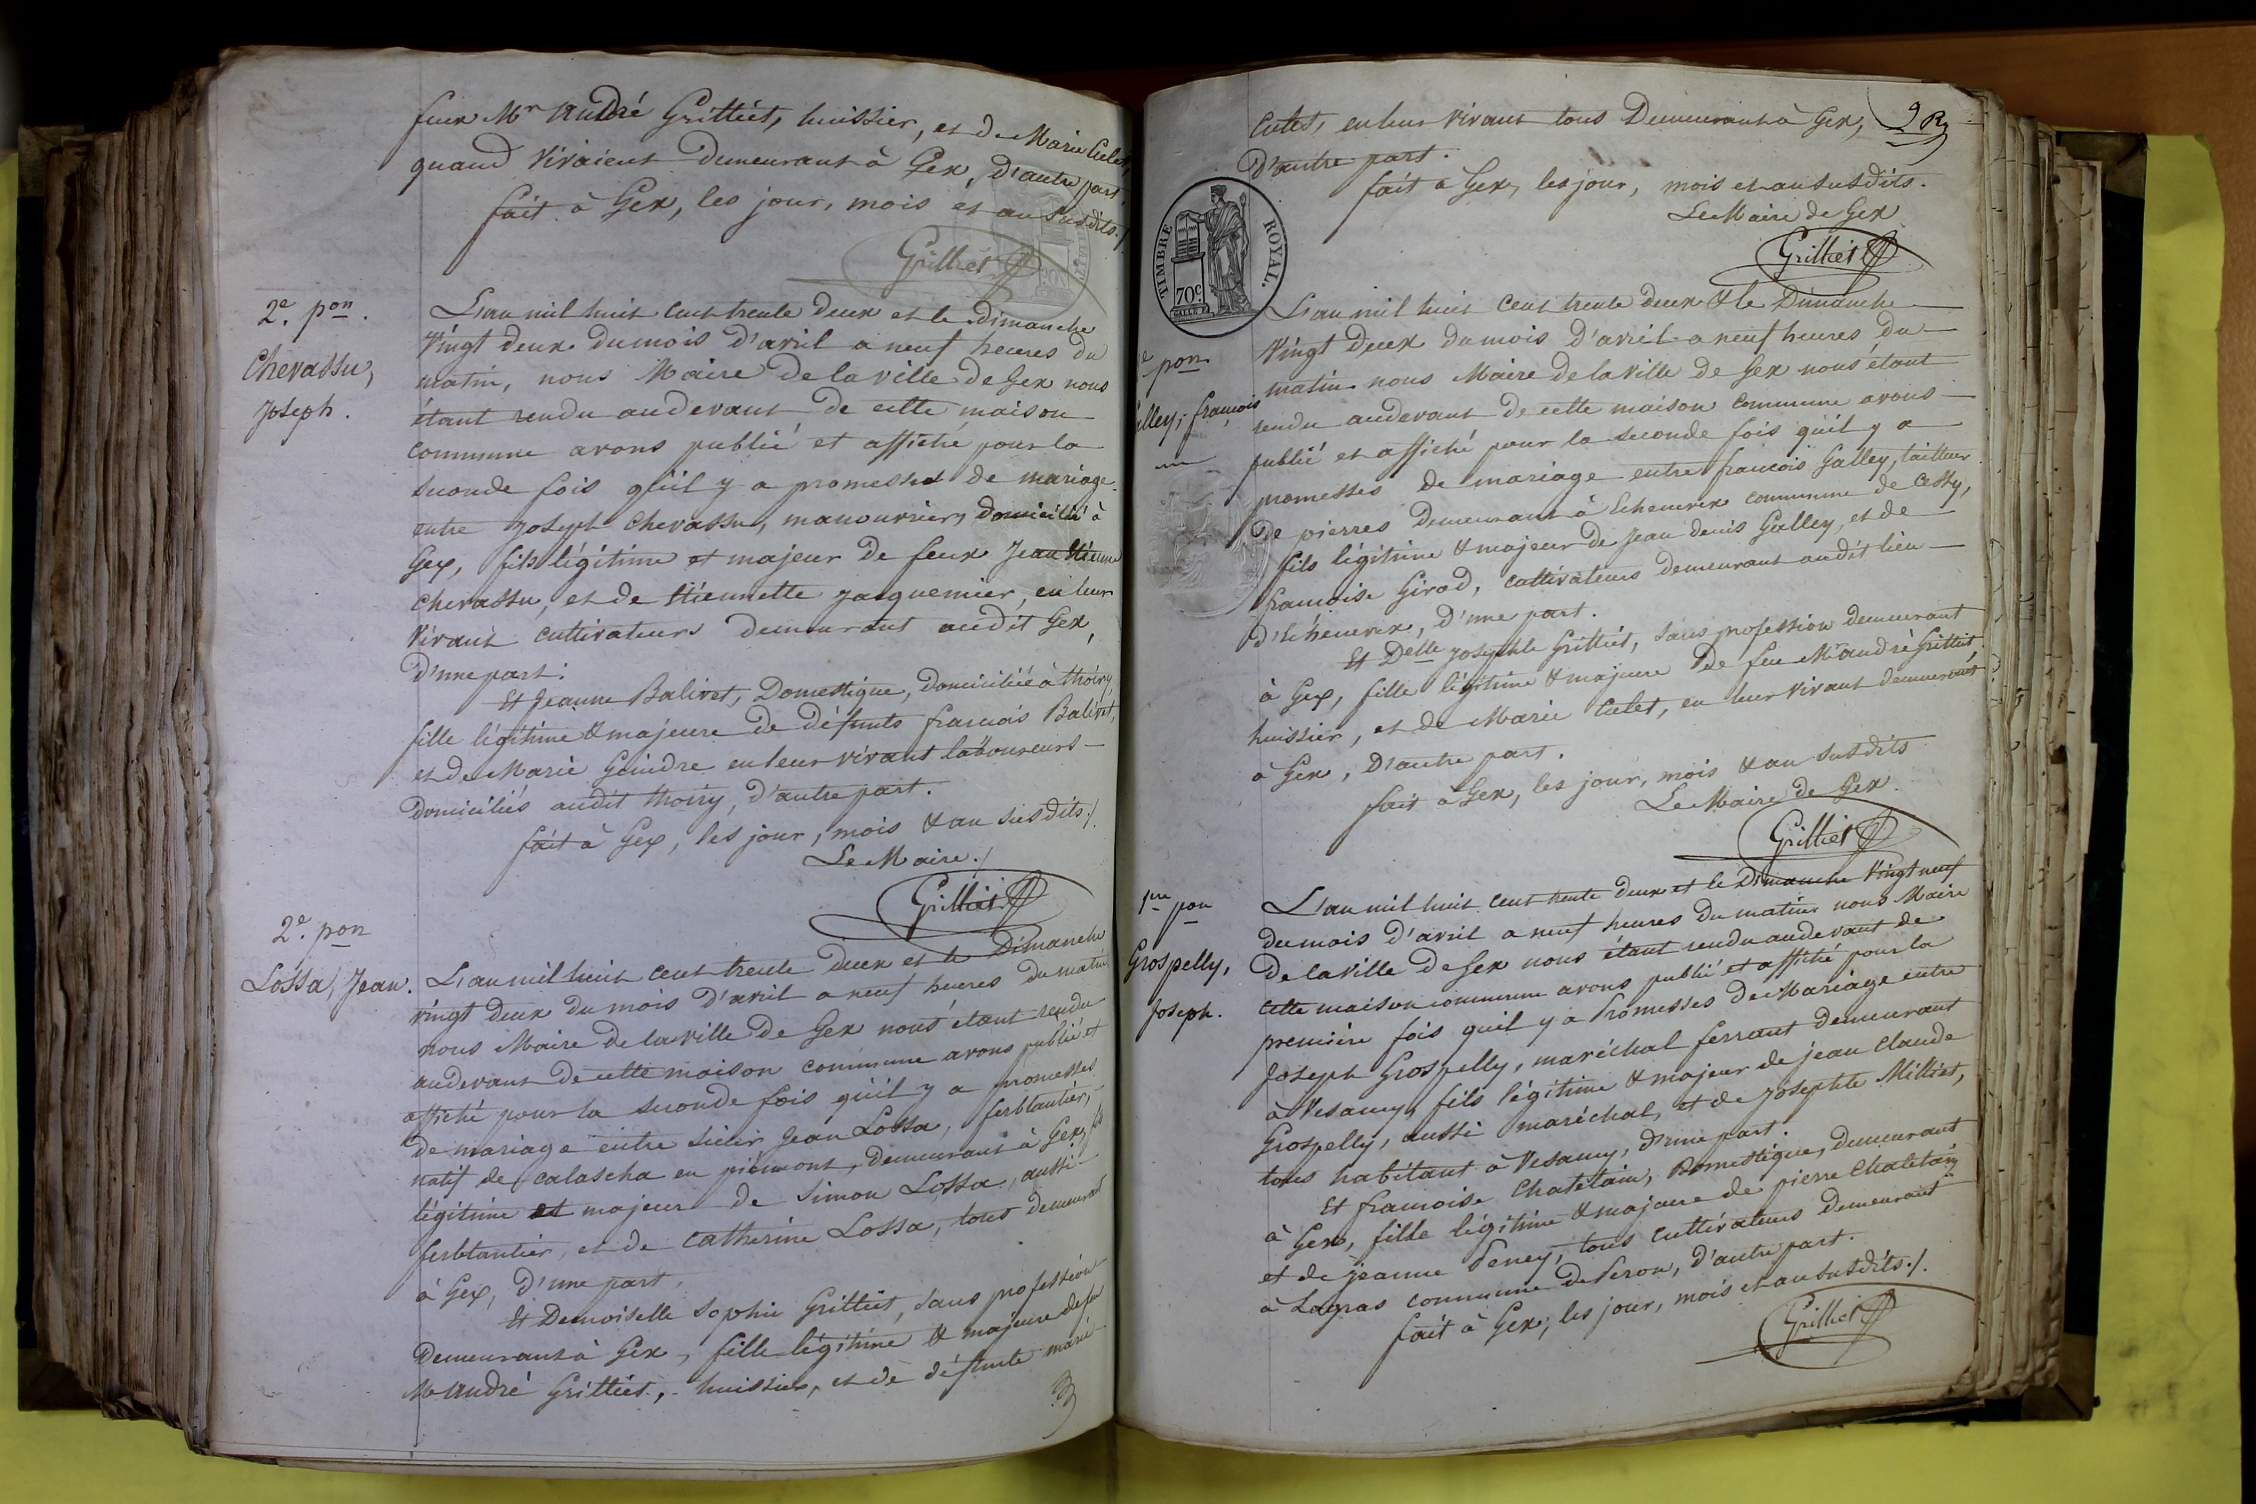 feux Mr André Grilliet, huissier, et de Marie Culet,
quand vivaient demeurant à Gex, d'autre part.
fait à Gex, les jour, mois et an susdits./.
Grilliet
2e. pon.
Chevassu,
Joseph.
L'an mil huit cent trente deux et le dimanche
vingt deux du mois d'avril a neuf heures du
matin, nous Maire de la ville de Gex nous
étant rendu audevant de cette maison
commune avons publié et affiché pour la
seconde fois qu'il y a promesses de mariage
entre Joseph Chevassu, manouvrier, domicilié à
Gex, fils légitime et majeur de feux Jean Etienne
Chevassu, et de Etiennette Jacquemier, en leur
vivant cultivateurs demeurant audit Gex,
d'une part.
Et Jeanne Balivet, Domestique, domiciliée à thoiry,
fille légitime & majeure de défunts francois Balivet,
et de Marie Gindre en leur vivant laboureurs
domiciliés audit thoiry, d'autre part.
fait à Gex, les jour, mois & an susdits./.
Le Maire./.
Grilliet
2e. pon
Lossa, Jean.
L'an mil huit cent trente deux et le Dimanche
vingt deux du mois d'avril a neuf heures du matin
nous Maire de la ville de Gex nous étant rendu
audevant de cette maison commune avons publié et
affiché pour la seconde fois qu'il y a promesses
de mariage entre sieur Jean Lossa, ferblantier,
natif de Calascha en piémont, demeurant à Gex, fils
légitime et majeur de Simon Lossa, aussi
ferblantier, et de Catherine Lossa, tous demeurant
à Gex, d'une part.
Et Demoiselle Sophie Grilliet, sans profession
demeurant à Gex, fille légitime & majeure de feu
M André Grilliet, huissier, et de défunte marie
Culet, en leur vivant tous Demeurant à Gex,
d'autre part.
fait à Gex, les jour, mois et an susdits.
Le Maire de Gex
Grilliet
TIMBRE ROYAL.
70c.
pon
lley, francois
L'an mil huit cent trente deux & le Dimanche
vingt deux du mois d'avril a neuf heures du
matin nous Maire de la ville de Gex nous étant
rendu audevant de cette maison commune avons
publié et affiché pour la seconde fois qu'il y a
promesses de mariage entre francois Galley, tailleur
de pierres demeurant à Echenevex commune de Cessy,
fils légitime & majeur de Jean denis Galley, et de
francoise Girod, cultivateurs demeurant audit lieu
d'Echenevex, d'une part.
Et Delle Josephte Grilliet, sans profession demeurant
à Gex, fille légitime & majeure de feu Mr andré Grilliet,
huissier, et de Marie Culet, en leur vivant demeurant
à Gex, d'autre part.
fait à Gex, les jour, mois & an susdits
Le Maire de Gex.
Grilliet
1ere pon
Grospelly,
Joseph.
L'an mil huit cent trente deux et le Dimanche vingt neuf
du mois d'avril a neuf heures du matin nous Maire
de la ville de Gex nous étant rendu audevant de
cette maison commune avons publié et affiché pour la
première fois qu'il y a Promesses de Mariage entre
Joseph Grospelly, maréchal ferrant demeurant
à Vesancy, fils légitime & majeur de jean claude
Grospelly, aussi maréchal, et de Josephte Milliet,
tous habitant à Vesancy, d'une part.
Et francoise Chatelain, Domestique, demeurant
à Gex, fille légitime & majeure de pierre Chatelain
et de jeanne Peney, tous cultivateurs demeurant
à Logras commune de Peron, d'autre part.
fait à Gex, les jour, mois et an susdits./.
Grilliet